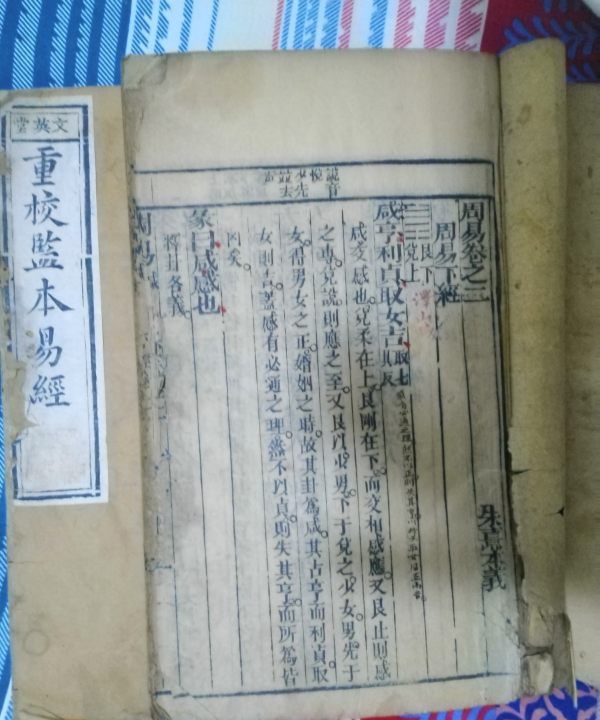 文英堂
重校監本易經
說音
悅
少先
並去
聲
周易卷之二
周易下經
朱熹本義
艮下
兌上
咸亨利貞取女吉取七具反
咸交感也。兌柔在上艮剛在下。而交相感應。又艮止則感
之專。兌說則應之至。又艮以少男下于兌之少女。男先于
女。得男女之正。婚姻之時。故其卦爲咸。其占亨而利貞。取
女則吉。蓋感有必通之理。然不以貞。則失其亨。而所爲皆
凶矣。
彖曰咸感也
釋卦名義。
周易